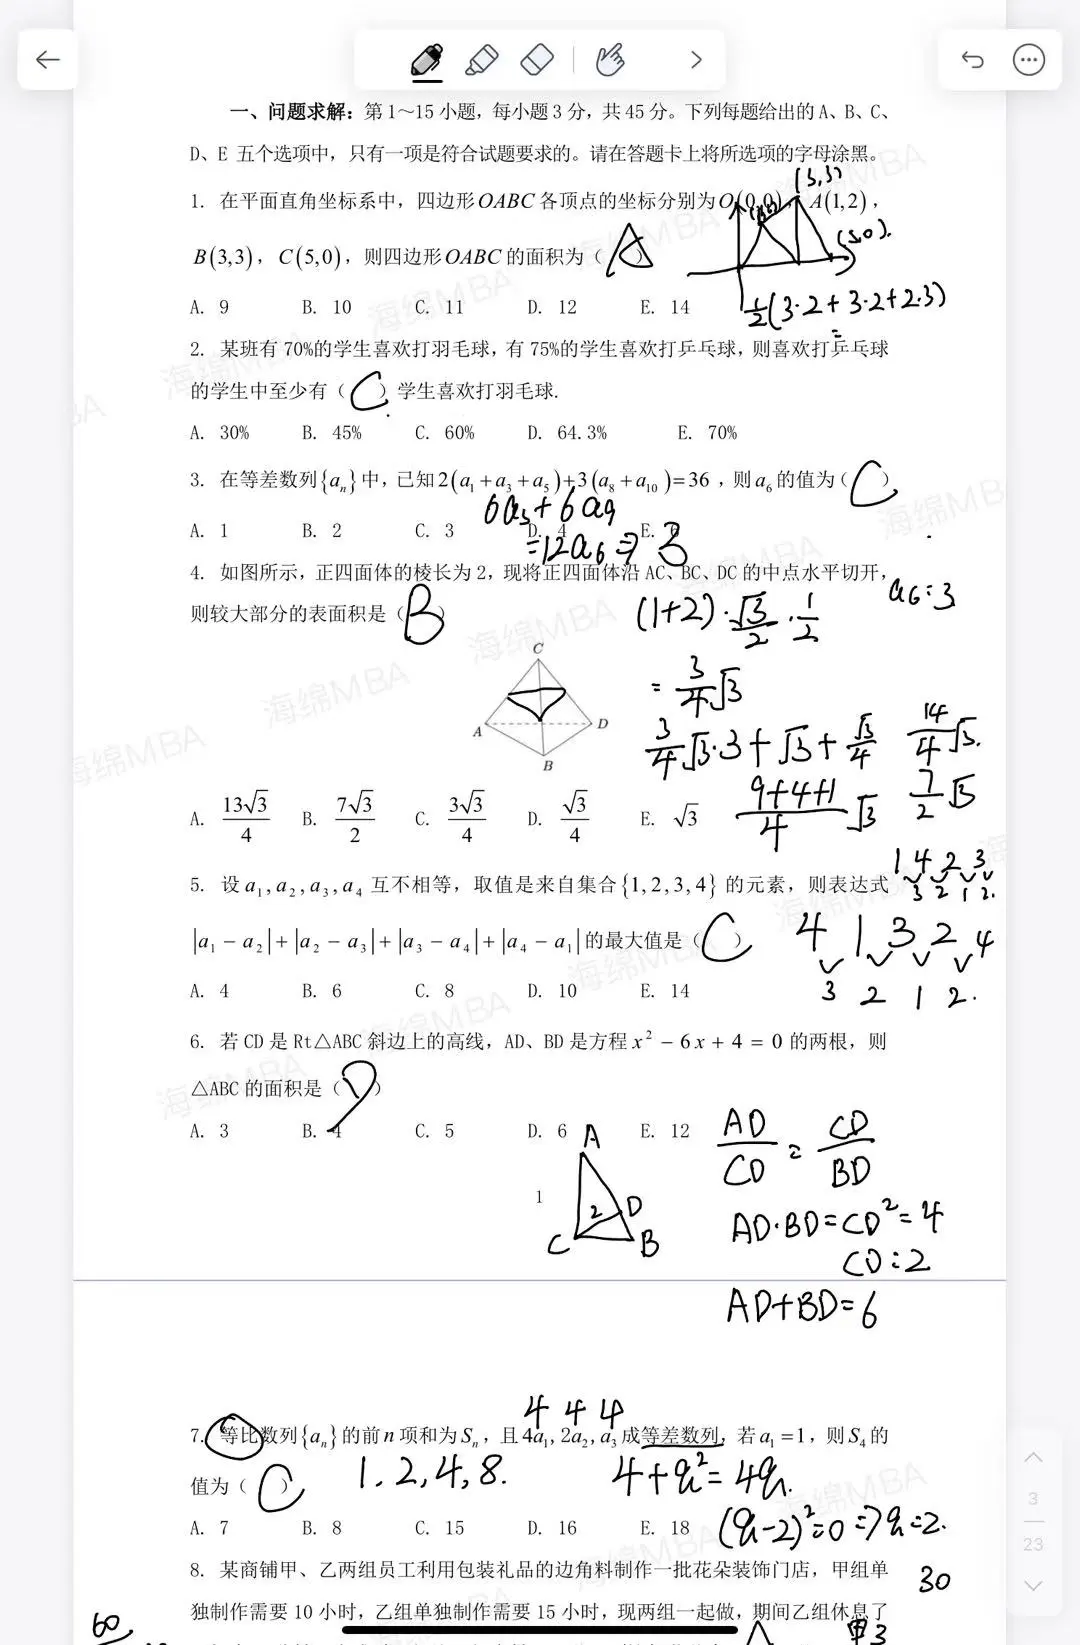 一、问题求解：第1～15小题，每小题3分，共45分。下列每题给出的A、B、C、
D、E 五个选项中，只有一项是符合试题要求的。请在答题卡上将所选项的字母涂黑。
(3,3)
1. 在平面直角坐标系中，四边形OABC各顶点的坐标分别为O(0,0)，A(1,2)，
(5,0).
B(3,3)，C(5,0)，则四边形OABC的面积为（A）
A. 9 B. 10 C. 11 D. 12 E. 14
½(3·2+3·2+2·3)
=
2. 某班有70%的学生喜欢打羽毛球，有75%的学生喜欢打乒乓球，则喜欢打乒乓球
的学生中至少有（C）学生喜欢打羽毛球.
A. 30% B. 45% C. 60% D. 64.3% E. 70%
3. 在等差数列{aₙ}中，已知2(a₁+a₃+a₅)+3(a₈+a₁₀)=36，则a₆的值为（C）
6a₃+6a₉
A. 1 B. 2 C. 3 D. 4 E. 6
=12a₆⇒3
4. 如图所示，正四面体的棱长为2，现将正四面体沿AC、BC、DC的中点水平切开，
a₆=3
则较大部分的表面积是（B）
(1+2)·√3/2·1/2
C
=3/4√3
A D
B
3/4√3·3+√3+√3/4
14/4√3.
9+4+1/4√3
7/2√3
A. 13√3/4 B. 7√3/2 C. 3√3/4 D. √3/4 E. √3
1 4 2 3
3 2 1 2.
5. 设a₁,a₂,a₃,a₄互不相等，取值是来自集合{1,2,3,4}的元素，则表达式
|a₁－a₂|+|a₂－a₃|+|a₃－a₄|+|a₄－a₁|的最大值是（C）
4 1 3 2 4
3 2 1 2.
A. 4 B. 6 C. 8 D. 10 E. 14
6. 若CD是Rt△ABC斜边上的高线，AD、BD是方程x²－6x＋4＝0的两根，则
△ABC的面积是（D）
A. 3 B. 4 C. 5 D. 6 E. 12
AD/CD=CD/BD
A
2 D
C B
1
AD·BD=CD²=4
CD=2
AD+BD=6
4 4 4
7. 等比数列{aₙ}的前n项和为Sₙ，且4a₁,2a₂,a₃成等差数列，若a₁=1，则S₄的
值为（C）
1.2,4,8.
4+q²=4q.
A. 7 B. 8 C. 15 D. 16 E. 18
(q-2)²=0⇒q=2.
8. 某商铺甲、乙两组员工利用包装礼品的边角料制作一批花朵装饰门店，甲组单
30
独制作需要10小时，乙组单独制作需要15小时，现两组一起做，期间乙组休息了
60
甲3
3
23
海绵MBA